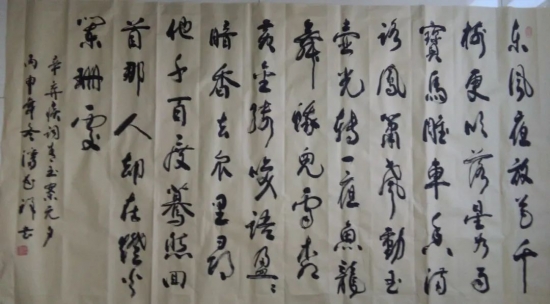 東風夜放花千
樹更吹落星如雨
寶馬雕車香滿
路鳳簫聲動玉
壺光轉一夜魚龍
舞蛾兒雪柳
黃金縷笑語盈〻
暗香去眾里尋
他千百度驀然回
首那人卻在燈火
闌珊處
辛弃疾詞青玉案元夕
丙申年冬